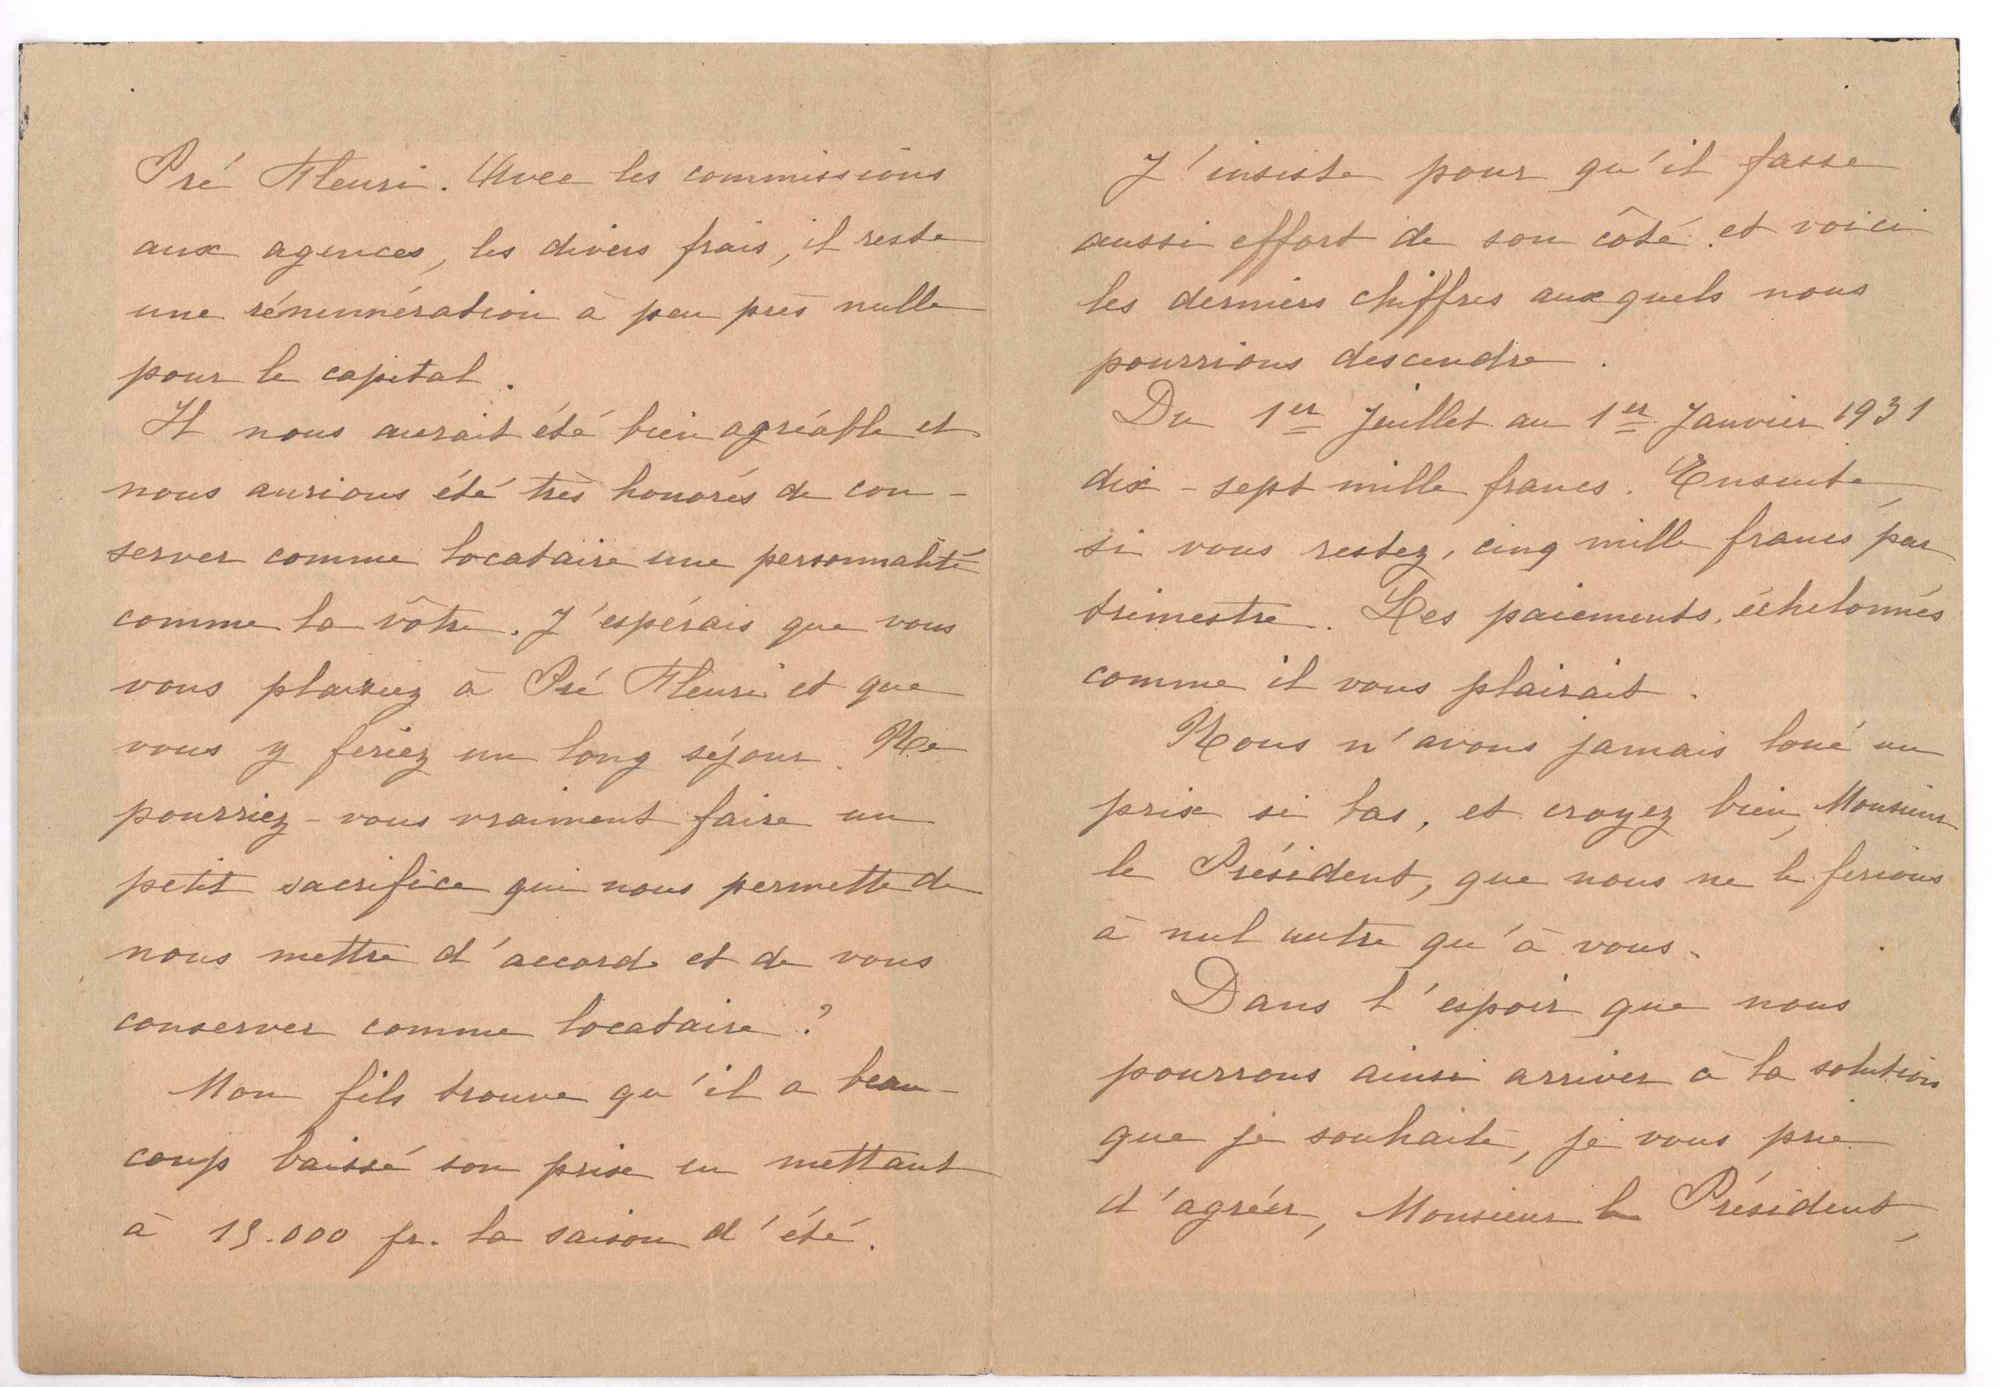 Pré Fleuri. Avec les commissions
aux agences, les divers frais, il reste
une rénumération à peu près nulle
pour le capital.
Il nous aurait été bien agréable et
nous aurions été très honorés de con-
server comme locataire une personnalité
comme la vôtre. J'espérais que vous
vous plairiez à Pré Fleuri et que
vous y feriez un long séjour. Ne
pourriez-vous vraiment faire un
petit sacrifice qui nous permette de
nous mettre d'accord et de vous
conserver comme locataire ?
Mon fils trouve qu'il a beau-
coup baissé son prix en mettant
à 15.000 fr. la saison d'été.
J'insiste pour qu'il fasse
aussi effort de son côté et voici
les derniers chiffres auxquels nous
pourrions descendre.
Du 1er Juillet au 1er Janvier 1931
dix-sept mille francs. Ensuite,
si vous restez, cinq mille francs par
trimestre. Les paiements, échelonnés
comme il vous plairait.
Nous n'avons jamais loué un
prix si bas, et croyez bien, Monsieur
le Président, que nous ne le ferions
à nul autre qu'à vous.
Dans l'espoir que nous
pourrons ainsi arriver à la solution
que je souhaite, je vous prie
d'agréer, Monsieur le Président,